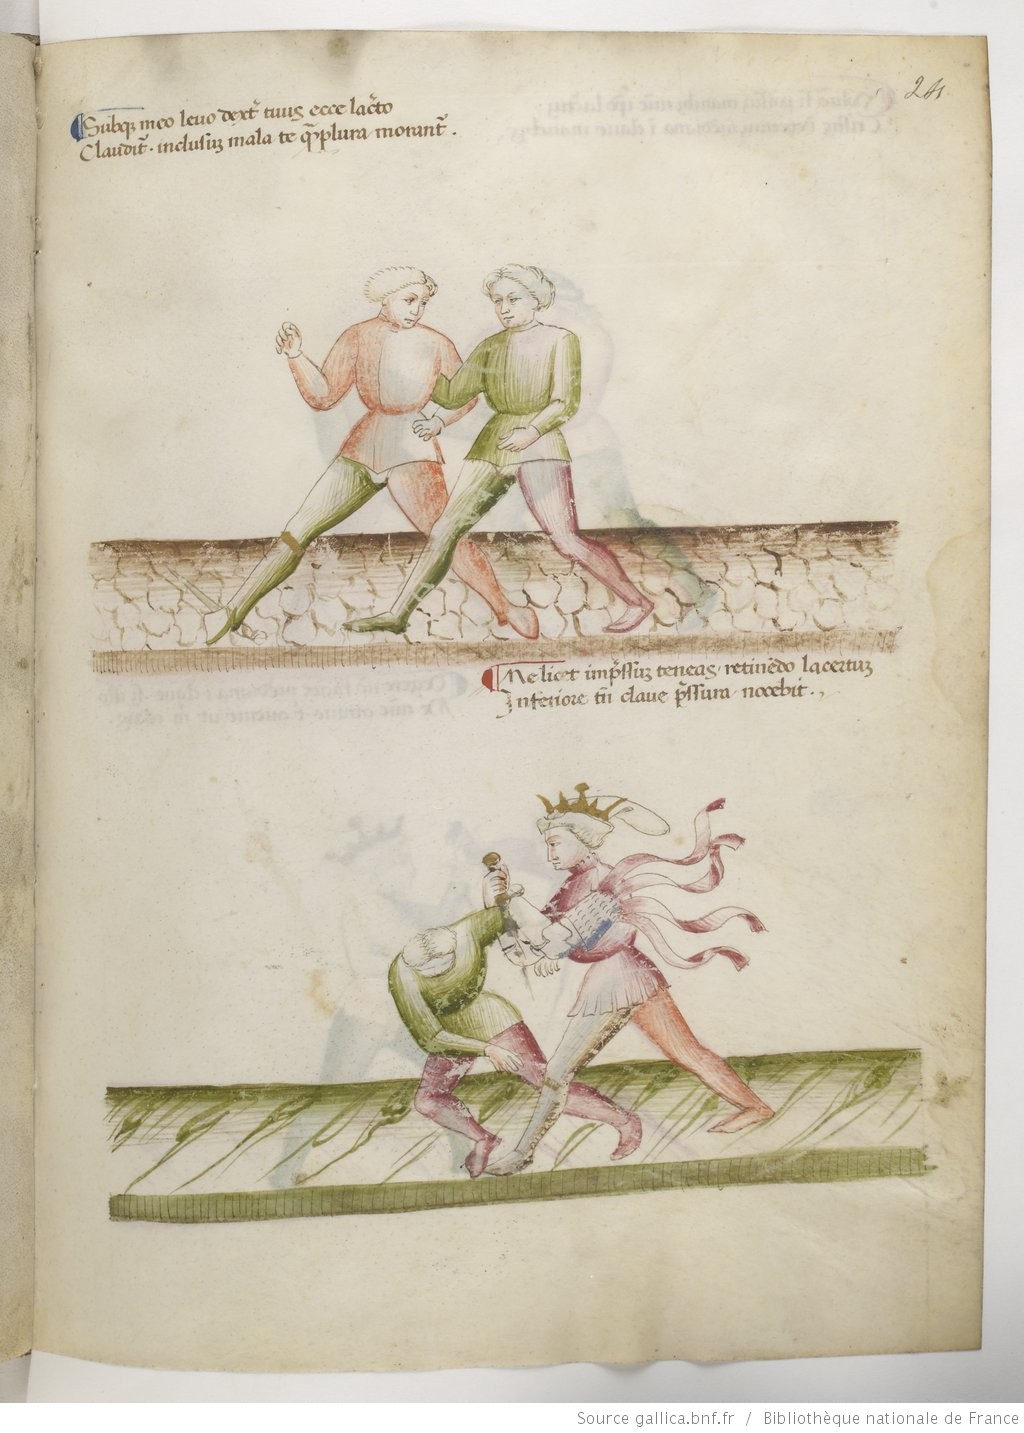 24.
Subq; meo levo dext̃ tuus ecce lac̃to
Claudit̃. inclusuʒ mala te q̃plura morant̃.
Me licet imp̃ssuʒ teneas. retinẽdo lacertuʒ
Inferiore tñ clave p̃ssura nocebit.,
Source gallica.bnf.fr / Bibliothèque nationale de France